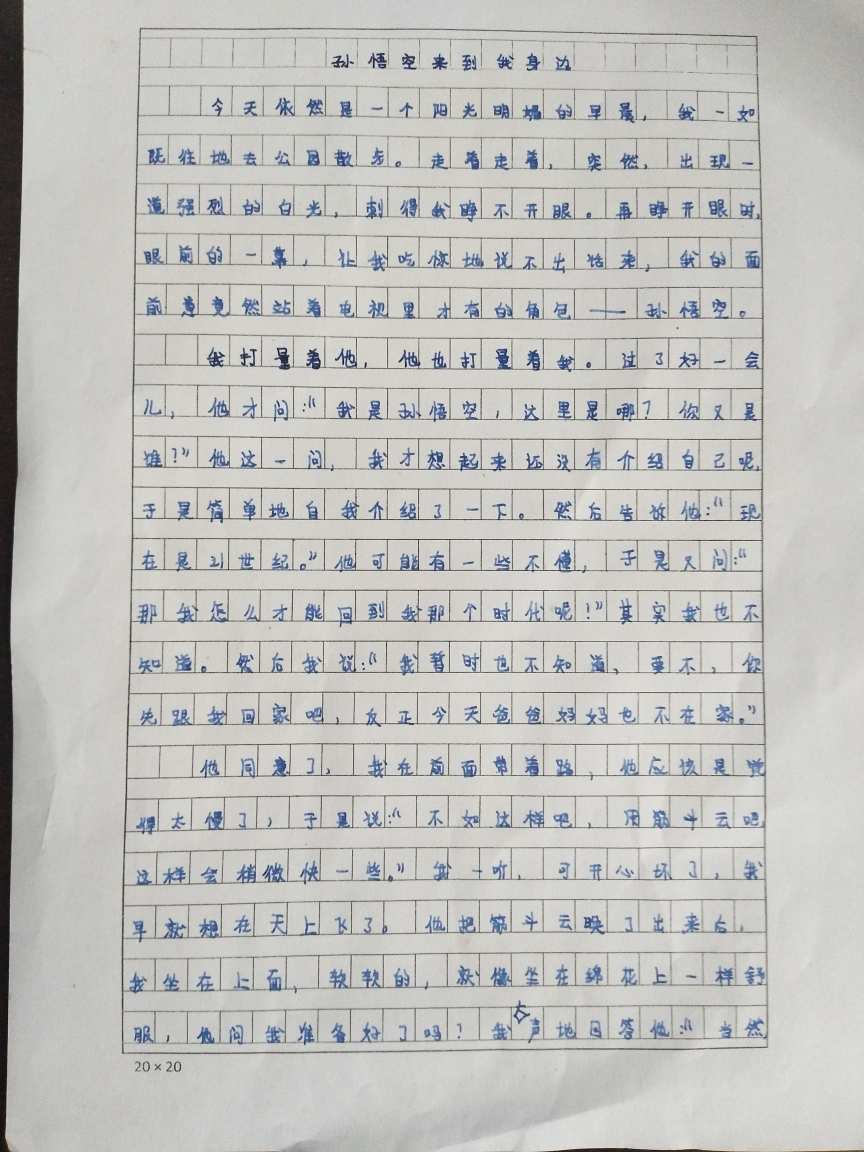 孙悟空来到我身边
今天依然是一个阳光明媚的早晨，我一如
既往地去公园散步。走着走着，突然，出现一
道强烈的白光，刺得我睁不开眼。再睁开眼时，
眼前的一幕，让我吃惊地说不出话来，我的面
前竟然站着电视里才有的角色——孙悟空。
我打量着他，他也打量着我。过了好一会
儿，他才问：“我是孙悟空，这里是哪？你又是
谁？”他这一问，我才想起来还没有介绍自己呢，
于是简单地自我介绍了一下。然后告诉他：“现
在是21世纪。”他可能有一些不懂，于是又问：“
那我怎么才能回到我那个时代呢！”其实我也不
知道。然后我说：“我暂时也不知道，要不，你
先跟我回家吧，反正今天爸爸妈妈也不在家。”
他同意了，我在前面带着路，他应该是觉
得太慢了，于是说：“不如这样吧，用筋斗云吧，
这样会稍微快一些。”我一听，可开心坏了，我
早就想在天上飞了。他把筋斗云唤了出来后，
我坐在上面，软软的，就像坐在绵花上一样舒
服，他问我准备好了吗？我大声地回答他：“当然
20×20